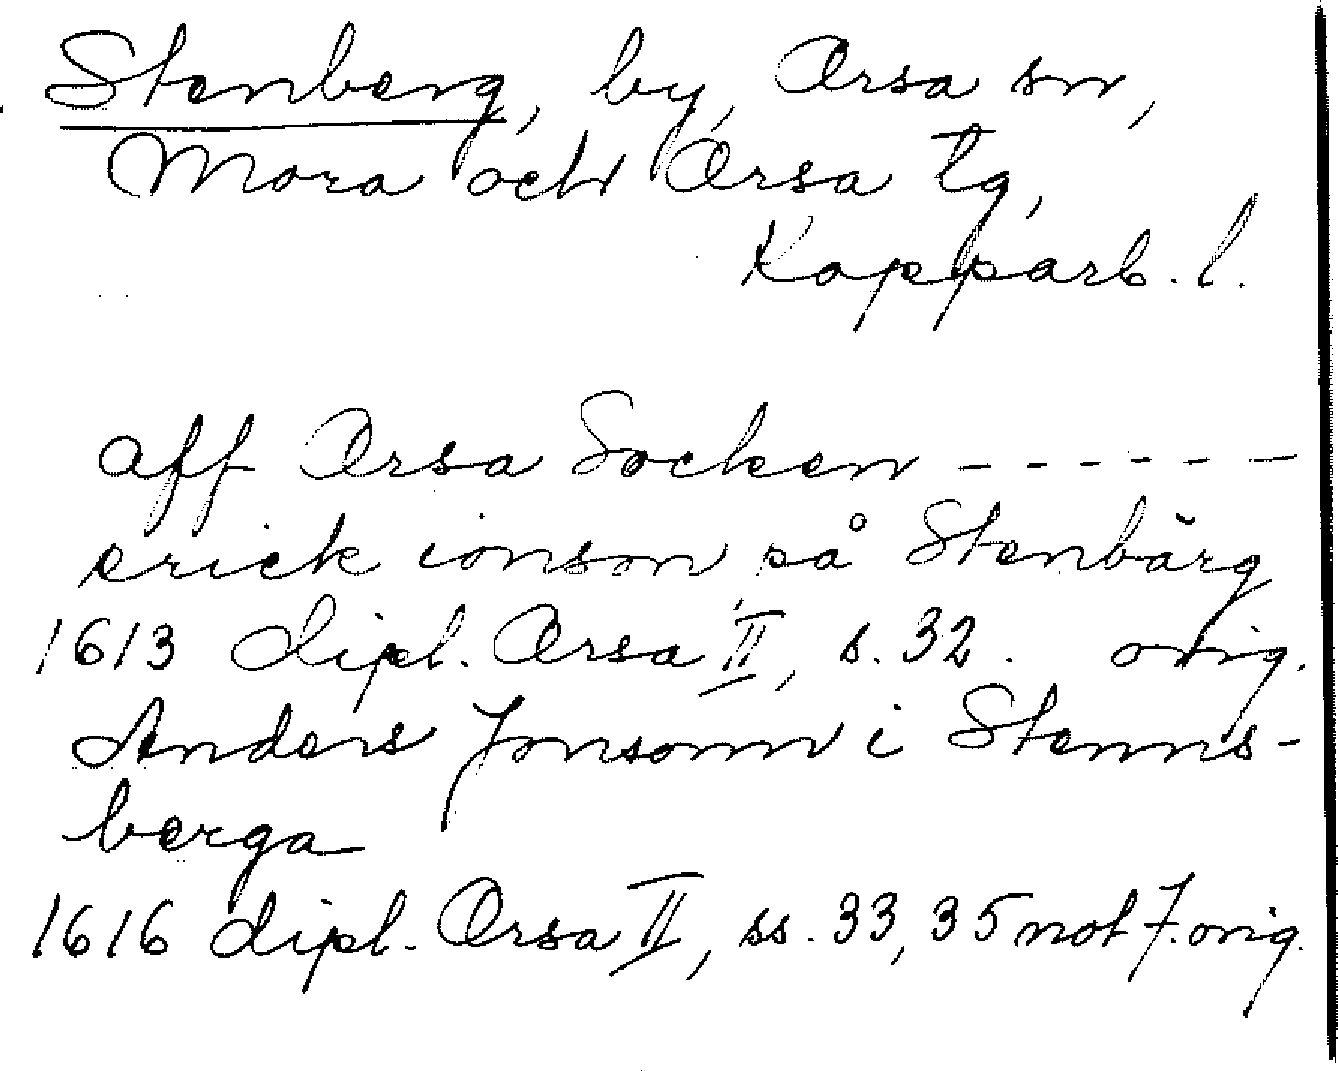 Stenberg, by, Orsa sn,
Mora och Orsa tg,
Kopparb. l.
aff Orsa Socken - - - - - -
erick ionson på Stenbärg
1613 dipl. Orsa II, s. 32. orig.
Anders Jonsonn i Stenns-
berga
1616 dipl. Orsa II, ss. 33, 35 not 7. orig.